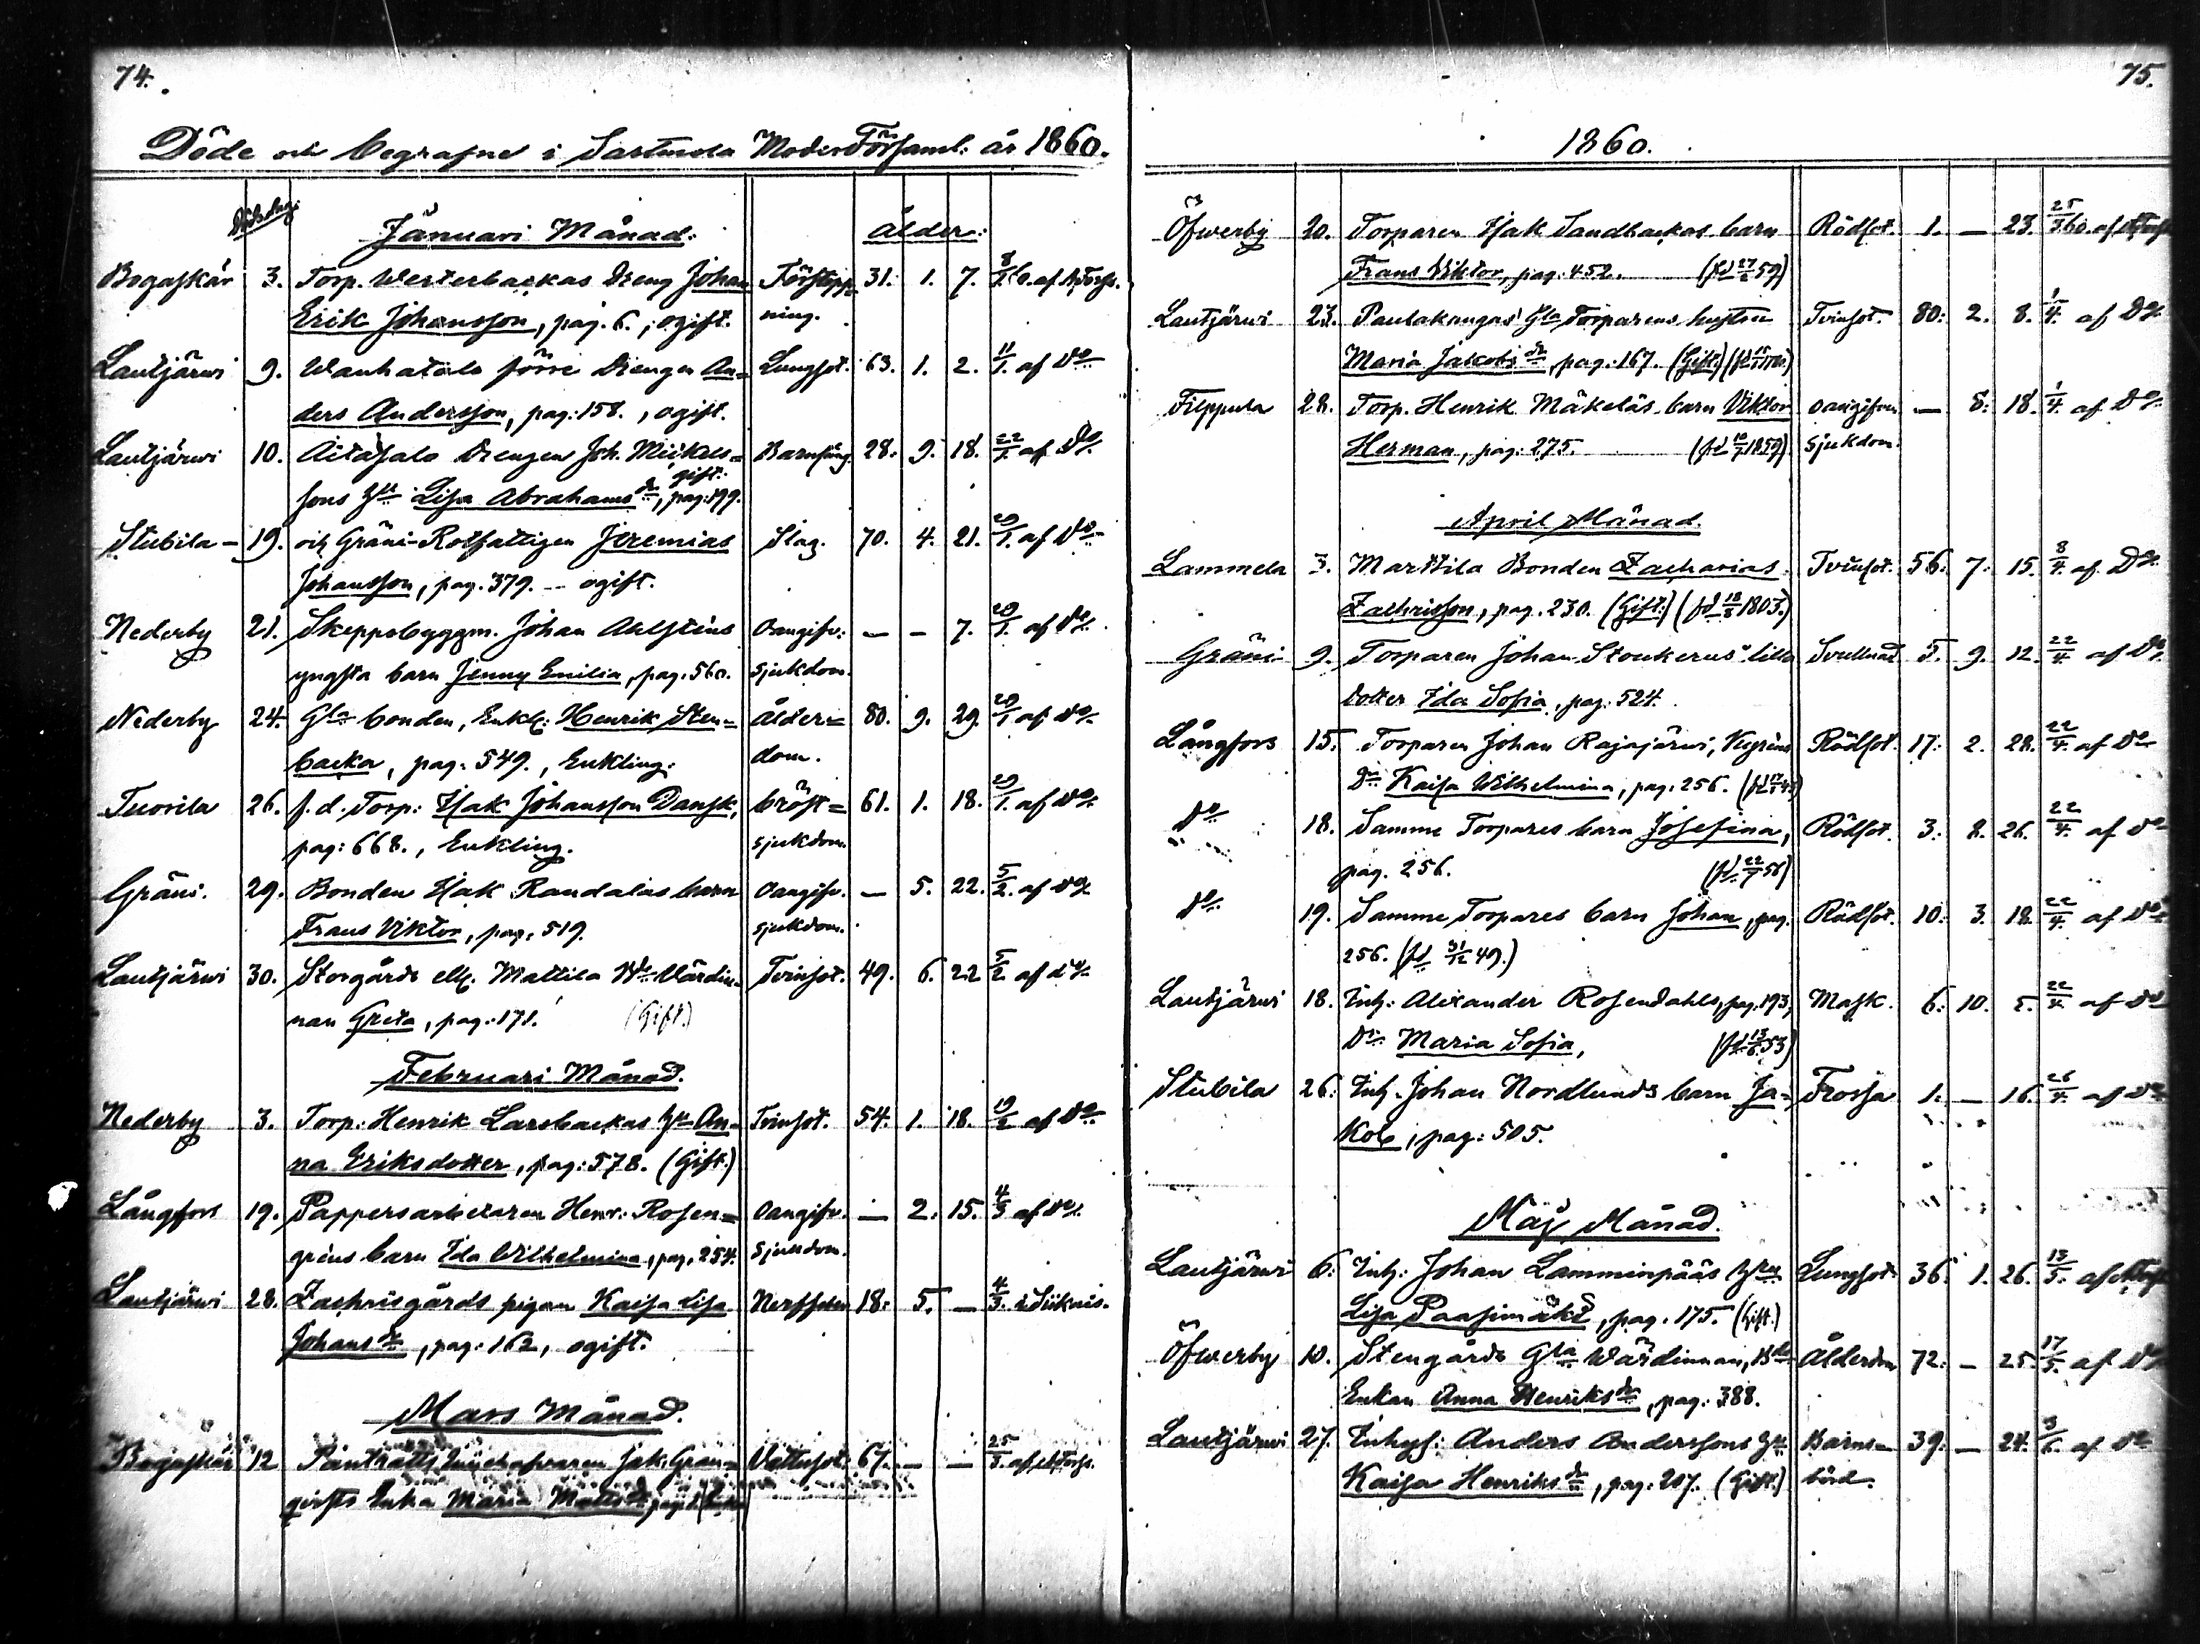 74.
Döde och begrafne i Sastmola Moder Församl: år 1860.
Dödsdag
Januari Månad:
ålder:
Bogaskär 3. Torp. Westerbackas Dreng Johan Förstopp= 31. 1. 7. 8/1. 60. af
Erik Johansson, pag. 6., ogift. ning.
Lautjärwi 9. Wanhatalo förre Drengen An= Lungsot. 63. 1. 2. 11/1. af Do
ders Andersson, pag: 158., ogift.
Lautjärwi 10. Aitasalo Drengen Joh. Mickels= Barnsäng 28. 9. 18. 22/1. af Do
gift:
sons Hu Lisa Abrahamsdr, pag: 199.
Stubila 19. och Gräni-Rotfattigen Jeremias Slag. 70. 4. 21. 29/1. af Do
Johansson, pag. 379. — ogift.
Nederby 21. Skeppsbyggm. Johan Ahlstens Oangifv: — — 7. 29/1. af Do
yngsta barn Jenny Emilia, pag. 560. sjukdom.
Nederby 24. Gla bonden, Enkl: Henrik Sten= ålder= 80. 9. 29. 29/1. af Do
backa, pag: 549., Enkling. dom.
Tuorila 26. f.d. Torp: Isak Johansson Dansk, bröst= 61. 1. 18. 29/1. af Do
pag: 668., Enkling. sjukdom.
Gräni. 29. Bonden Isak Randalas barn Oangifv. — 5. 22. 5/2. af Do
Frans Viktor, pag. 519. sjukdom.
Lautjärwi 30. Storgårds ell. Mattila Wärdin= Tvinsot. 49. 6. 22 5/2 af Do
nan Greta, pag: 171. (Gift.)
Februari Månad.
Nederby 3. Torp: Henrik Larsbackas Hu An= Tvinsot. 54. 1. 18. 19/2 af Do
na Eriksdotter, pag: 578. (Gift.)
Långfors 19. Pappersarbetaren Henr: Rosen= Oangifv. — 2. 15. 4/3 af Do
grens barn Ida Wilhelmina, pag. 254. sjukdom.
Lautjärwi 28. Zachrisgårds pigan Kaisa Lisa Nerffeber 18. 5. — 4/3. i Siikais.
Johansdr, pag: 162, ogift.
Mars Månad.
Bogaskär 12 Vattusot. 67. — — 25/3. af
Enka Maria Mattsdr
75.
1860.
Öfwerby 20. Torparen Isak Sandbackas barn Rödsot. 1. — 23. 25/3 60. af
Frans Viktor, pag: 452. (fd 27/2 59)
Lautjärwi 23. Paulakangas Gla Torparens hustru Tvinsot. 80. 2. 8. 1/4. af Do
Maria Jakobsdr, pag: 167. (Gift.)
Filppula 28. Torp. Henrik Mäkeläs barn Viktor oangifven — 8. 18. 1/4. af Do
Herman, pag: 275. (fd 10/7 1859) sjukdom.
April Månad.
Lammela 3. Marttila Bonden Zacharias Tvinsot. 56. 7. 15. 8/4. af Do
Zachrisson, pag. 230. (Gift.) (fd 18/8 1803.)
Gräni 9. Torparen Johan Stenkerus' lilla Svullnad 5. 9. 12. 22/4 af Do
dotter Ida Sofia, pag: 524.
Långfors 15. Torparen Johan Rajajärwi, Rödsot. 17. 2. 28. 22/4. af Do
Dr Kaisa Wilhelmina, pag: 256.
Do 18. Samme Torpares barn Josefina, Rödsot. 3. 8. 26. 22/4. af Do
pag. 256. (fd 22/7 56)
Do 19. Samme Torpares barn Johan, pag. Rödsot. 10. 3. 18. 22/4. af Do
256. (fd 31/12 49.)
Lautjärwi 18. Inh: Alexander Rosendahls, pag. 193, Mask. 6. 10. 5. 22/4. af Do
Dr Maria Sofia, (fd 13/6 53)
Stubila 26. Inh. Johan Nordlunds barn Ja= Frossa 1. — 16. 26/4. af Do
kob, pag: 505.
Maj Månad.
Lautjärwi 6. Inh: Johan Lamminpääs Hu Lungsot 36. 1. 26. 13/5. af
Lisa Paasimäki, pag. 175. (Gift.)
Öfwerby 10. Stengårds Gla Wärdinnan, Ålderdom 72. — 25. 17/5. af Do
Enkan Anna Henriksdr, pag: 388.
Lautjärwi 27. Inhys: Anders Anderssons Hu Barns= 39. — 24. 3/6. af Do
Kaisa Henriksdr, pag: 207. (Gift.) börd.